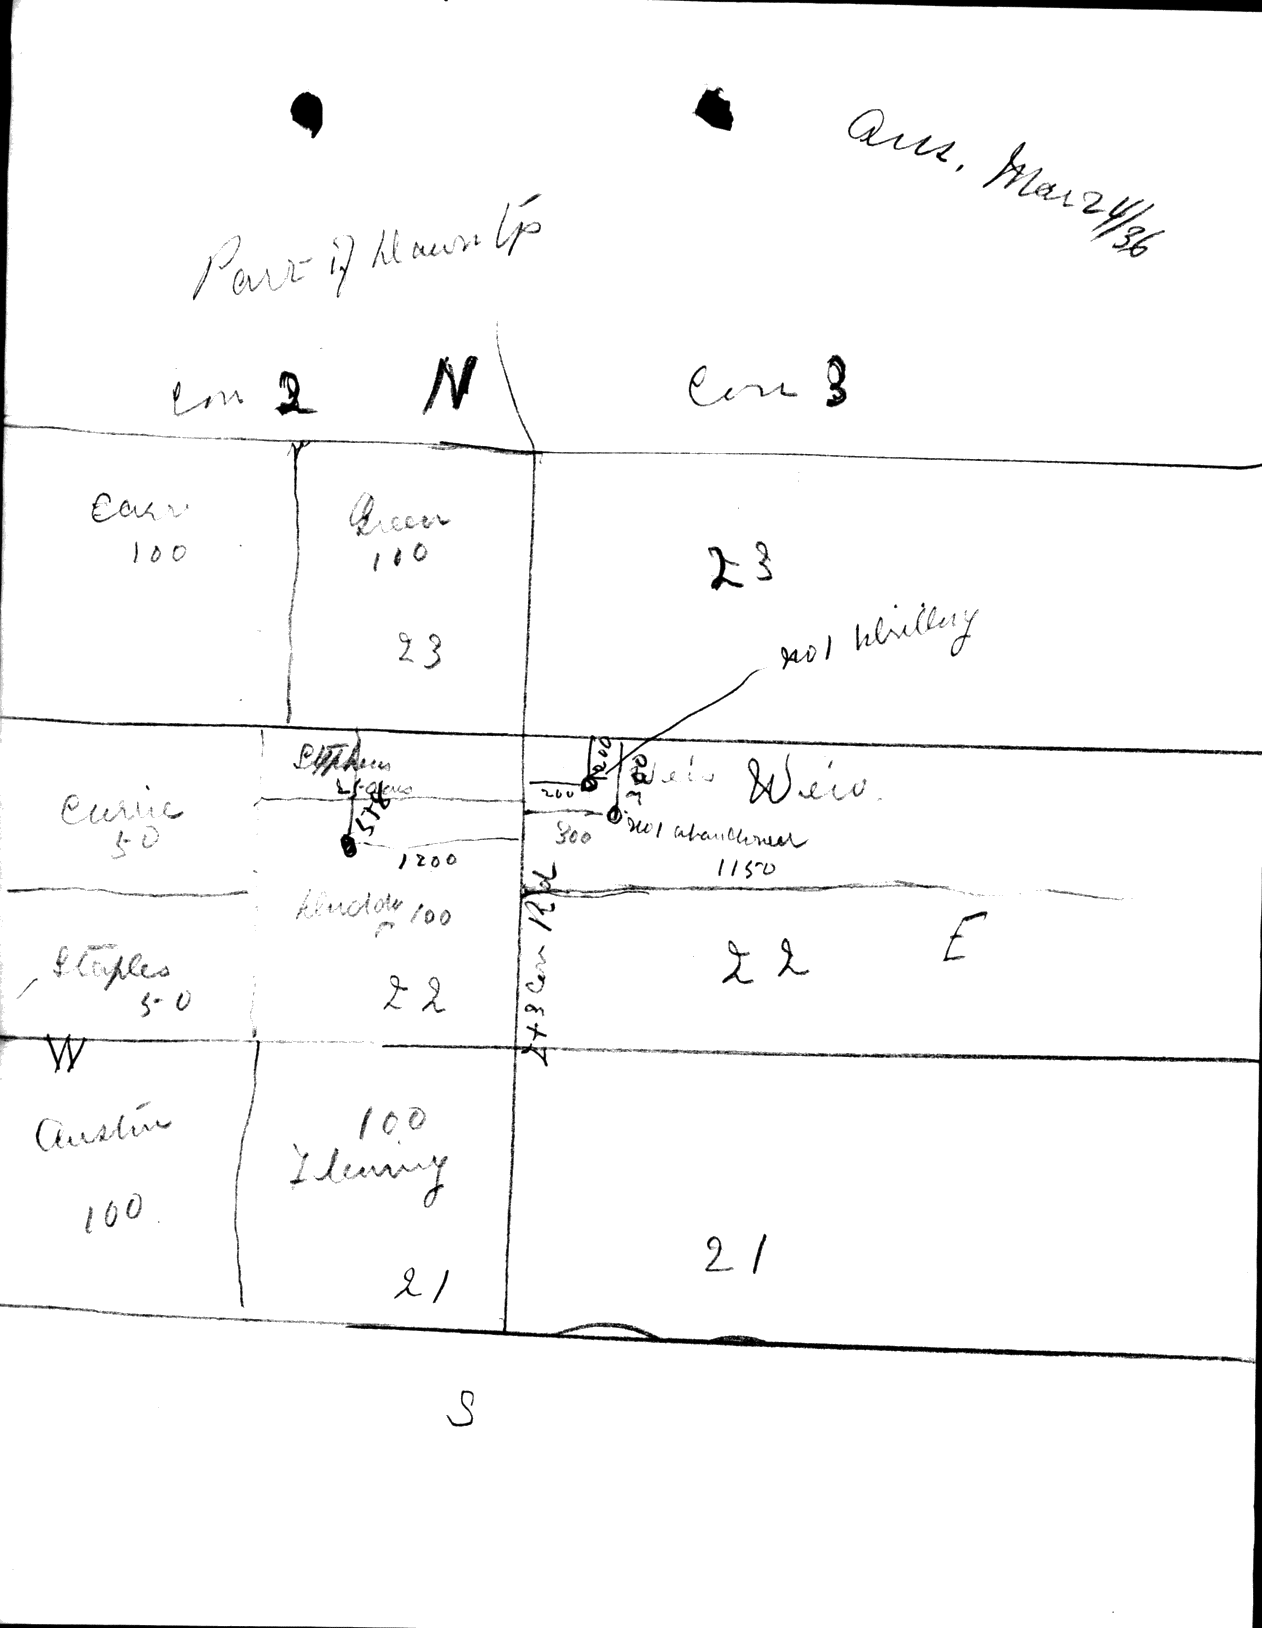 Ans. Mar 24/36
Part of Dawn Tp
Con 2 N Con 3
Carr
100
Green
100
23
23
No 1 Drilling
Stephens
25 acres
Currie
50
578
1200
200
200
300
300
Weir Weir.
No 1 abandoned
1150
100
22
Staples
50
2 + 3 Con Rd
22
E
W
Austin
100
100
Fleming
21
21
S